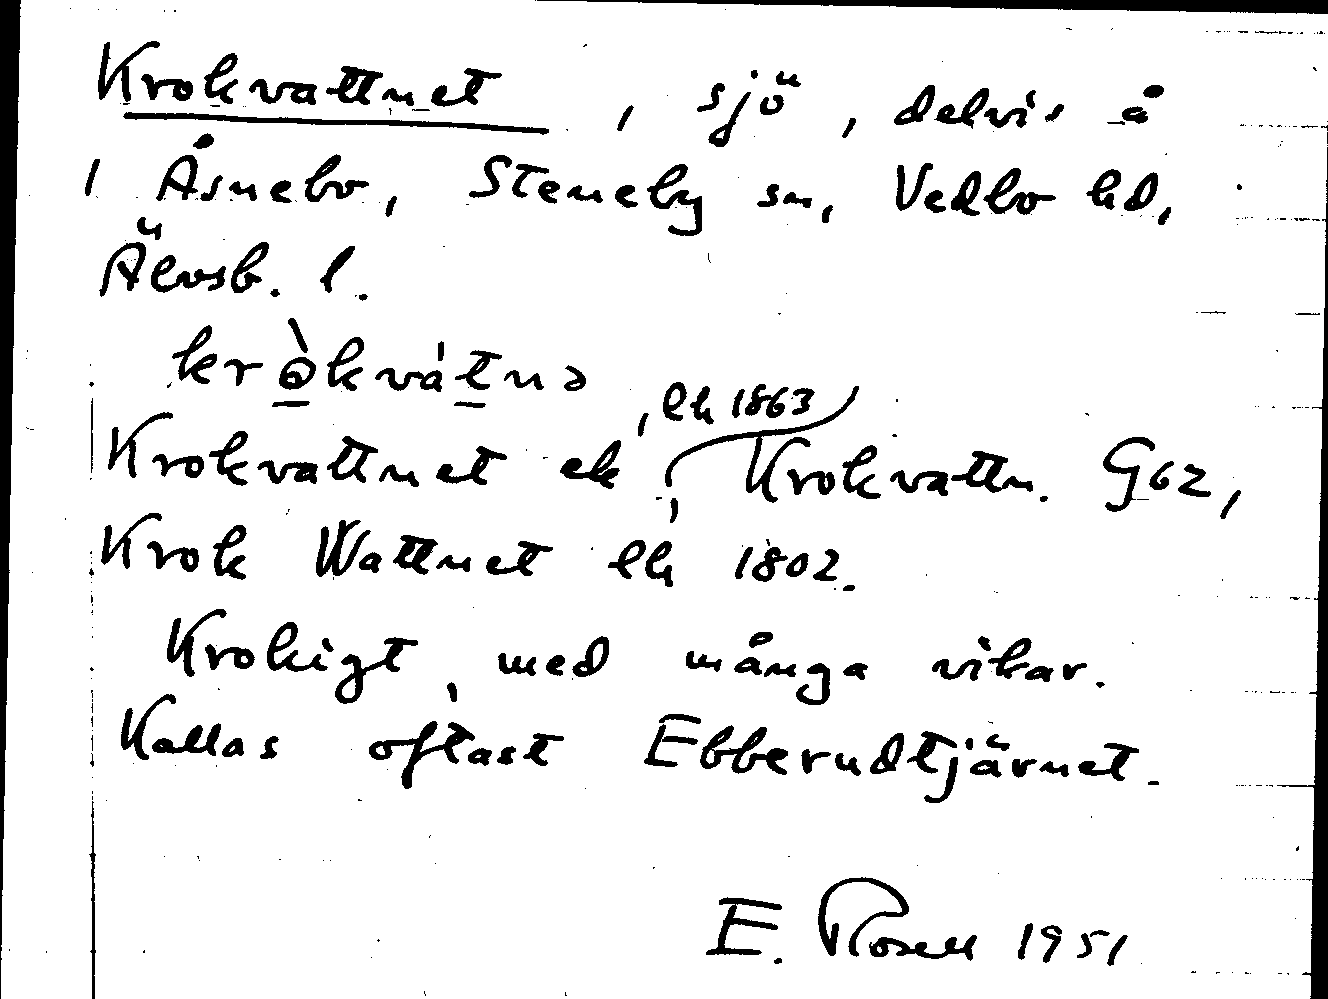 Krokvattnet, sjö, delvis å
1 Åsnebo, Steneby sn, Vedbo hd,
Älvsb. l.
kròkvátnə
Krokvattnet ek, lh 1863, Krokvattn. G62,
Krok Wattnet lh 1802.
Krokigt, med många vikar.
Kallas oftast Ebberudtjärnet.
E. Rosell 1951